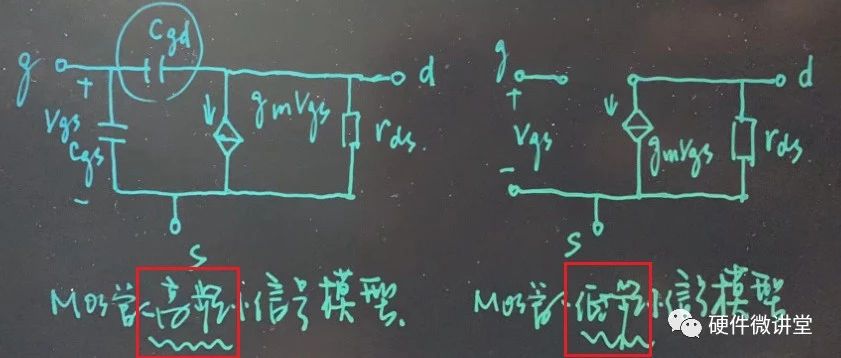 Cgd
g
d
+
Vgs
Cgs
-
gmVgs
rds
s
MOS管高频小信号模型
g
d
+
Vgs
-
gmVgs
rds
s
MOS管低频小信号模型
硬件微讲堂